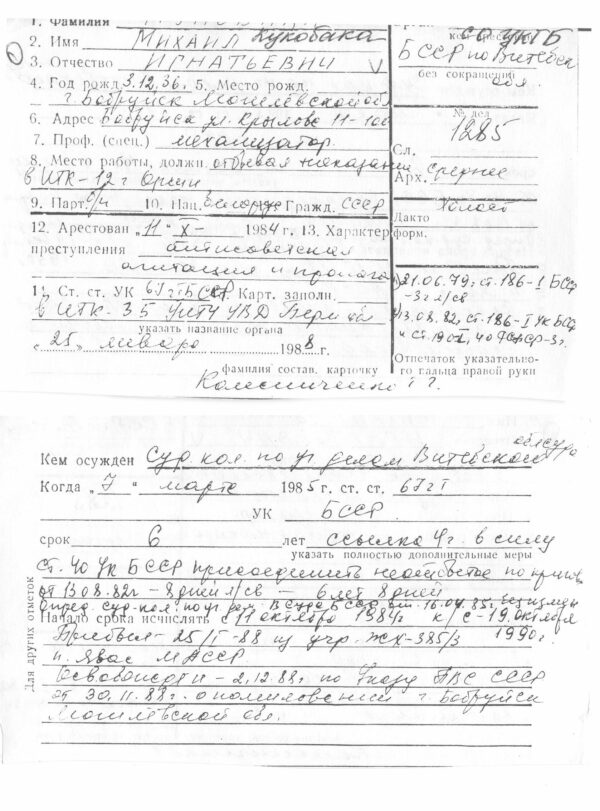 1. Фамилия
2. Имя Михаил Кукобака
3. Отчество Игнатьевич
4. Год рожд. 3.12.36. 5. Место рожд.
г. Бобруйск Могилёвской обл
6. Адрес Бобруйск ул. Крылова 11-100
7. Проф. (спец.) механизатор
8. Место работы, должн. отбывал наказание
в ИТК-12 г Орши
9. Парт. б/п 10. Нац. белорус Гражд. СССР
12. Арестован „11“ X 1984 г. 13. Характер
преступления антисоветская
агитация и пропаг
Ст. ст. УК 67 ч I БССР. Карт. заполн.
в ИТК-35 УИТУ УВД Перм
указать название органа
„25“ января 1988 г.
фамилия состав. карточку
СО УКГБ
БССР по Витебск
обл
без сокращений
№ дел
1285
Сл.
Арх. среднее
холост
Дакто
форм.
21.06.79г. ст. 186-I БССР
-3г л/св
13.08.82г. ст. 186-I УК БССР
Отпечаток указательно-
го пальца правой руки
Кем осужден Суд. кол. по уг. делам Витебского облсуда
Когда „7“ марта 1985 г. ст. ст. 67 ч I
УК БССР
срок 6 лет ссылка 4 г. в силу
указать полностью дополнительные меры
ст. 40 УК БССР присоединить неотбытое по пригов
от 13.08.82г - 8 дней л/св - 6 лет 8 дней
опред. суд. кол. по уг. дел. В. суда БССР от 16.04.85г. без измен
Начало срока исчислять с 11 октября 1984г к/с - 19 октября
1990г.
Прибыл - 25/I-88 из учр. ЖХ-385/3
п. Явас МАССР
Освобожден - 2.12.88г. по Указу ПВС СССР
от 30.11.88г. о помиловании г. Бобруйск
Могилёвской обл.
Для других отметок